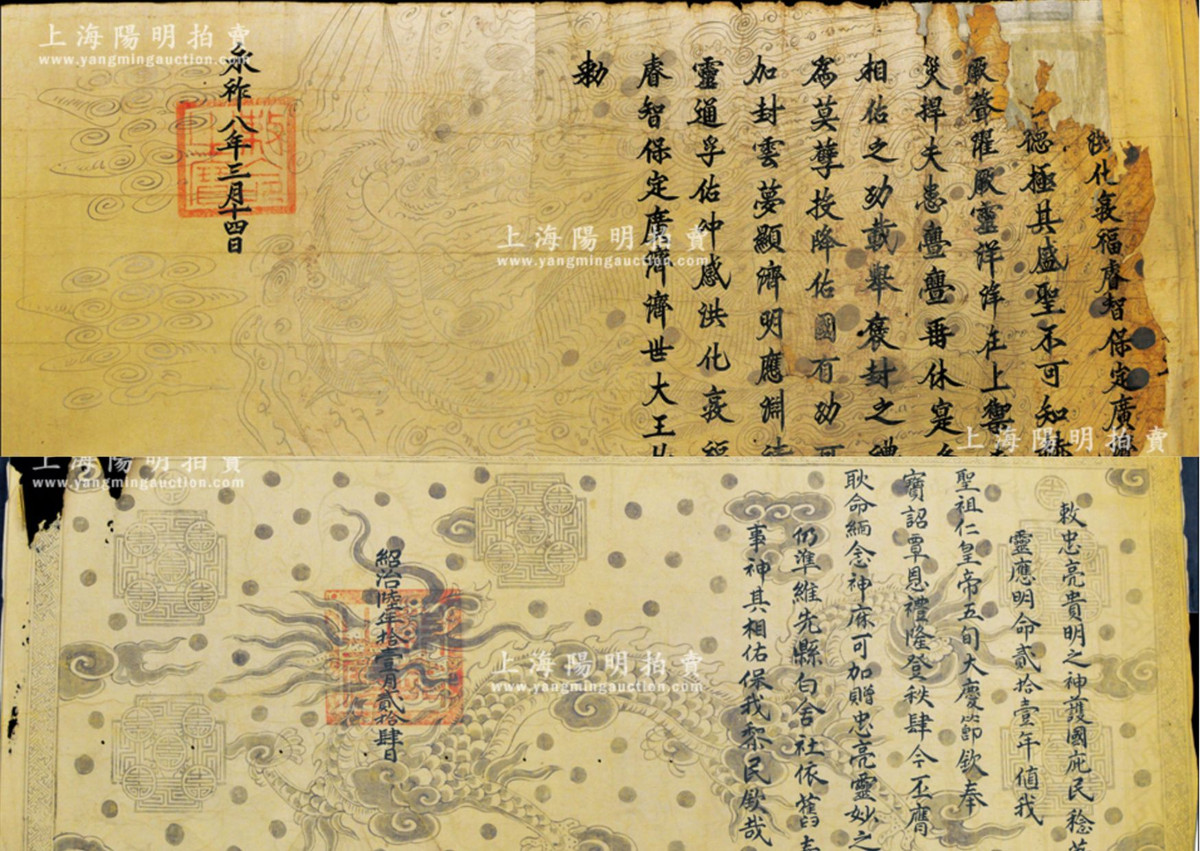 上海陽明拍賣
www.yangmingauction.com
洪化褒福睿智保定廣
德極其盛聖不可知
厥聲躍厥靈洋洋在上禦
災捍夫患亹亹垂休寔
相佑之功載舉褒封之禮
為莫孽授降佑國有功可
加封雲夢顯濟明應淵
靈通孚佑冲感洪化褒福
睿智保定廣濟濟世大王
勅
永祚八年三月十四日
上海陽明拍賣
www.yangmingauction.com
上海陽明拍賣
上海陽明拍賣
www.yangmingauction.com
敕忠亮貴明之神護國庇民稔
靈應明命貳拾壹年值我
聖祖仁皇帝五旬大慶節欽奉
寶詔覃恩禮隆登秩肆今丕膺
耿命緬念神庥可加贈忠亮靈妙之
仍準維先縣白舍社依舊奉
事神其相佑保我黎民欽哉
紹治陸年拾壹月貳拾肆日
上海陽明拍賣
www.yangmingauction.com